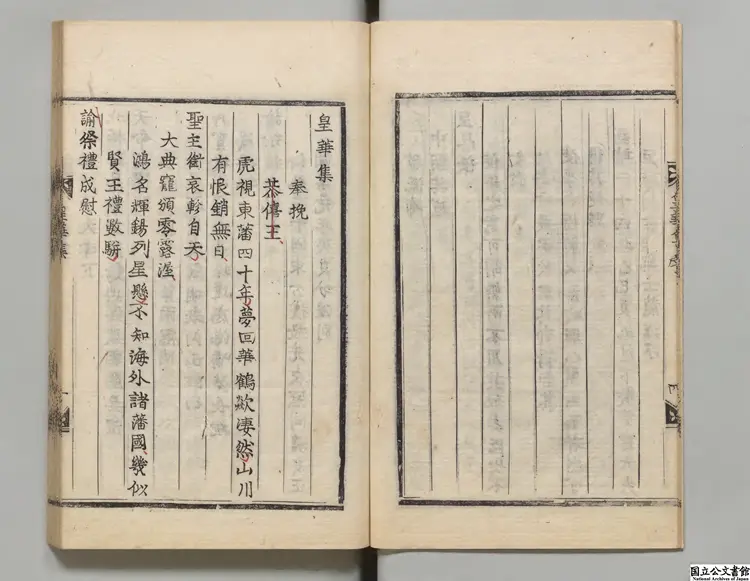 皇華集
奉挽
恭僖王
虎視東藩四十年夢回華鶴歘凄然山川
有恨銷無日
聖主銜哀軫自天
大典寵頒零露溼
鴻名輝錫列星懸不知海外諸藩國幾似
賢王禮數駢
諭祭禮成慰
国立公文書館
National Archives of Japan